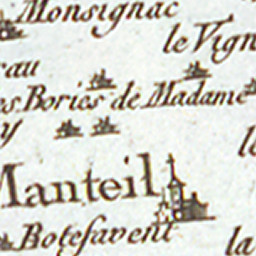 Monsignac
le Vign
eau
es Bories de Madame
y
le
Manteil
Botesavent
la